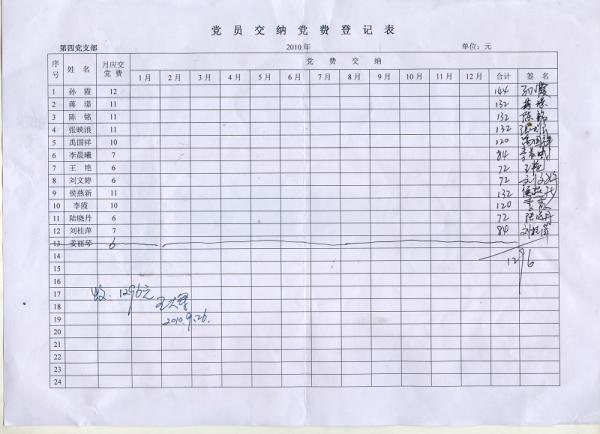 党员交纳党费登记表
第四党支部 2010年 单位：元
序号 姓名 月应交党费 党费交纳 合计 签名
1月 2月 3月 4月 5月 6月 7月 8月 9月 10月 11月 12月
1 孙霞 12 144 孙霞
2 蒋瑞 11 132
3 陈铭 11 132 陈铭
4 张映浪 11 132
5 禹国祥 10 120 禹国祥
6 李晨曦 7 84 李晨曦
7 王艳 6 72 王艳
8 刘文婷 6 72 刘文婷
9 侯燕新 11 132
10 李霞 10 120 李霞
11 陆晓丹 6 72 陆晓丹
12 刘桂萍 7 84 刘桂萍
13 姜丽琴 6
14 1296
15
16
17 收：1296元
18 2010.9.26.
19
20
21
22
23
24